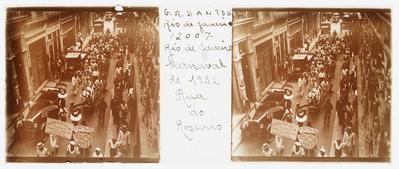 G.A. SANTOS
Rio de Janeiro
12007.
Rio de Janeiro
Carnaval
de 1932
Rua
do
Rosario